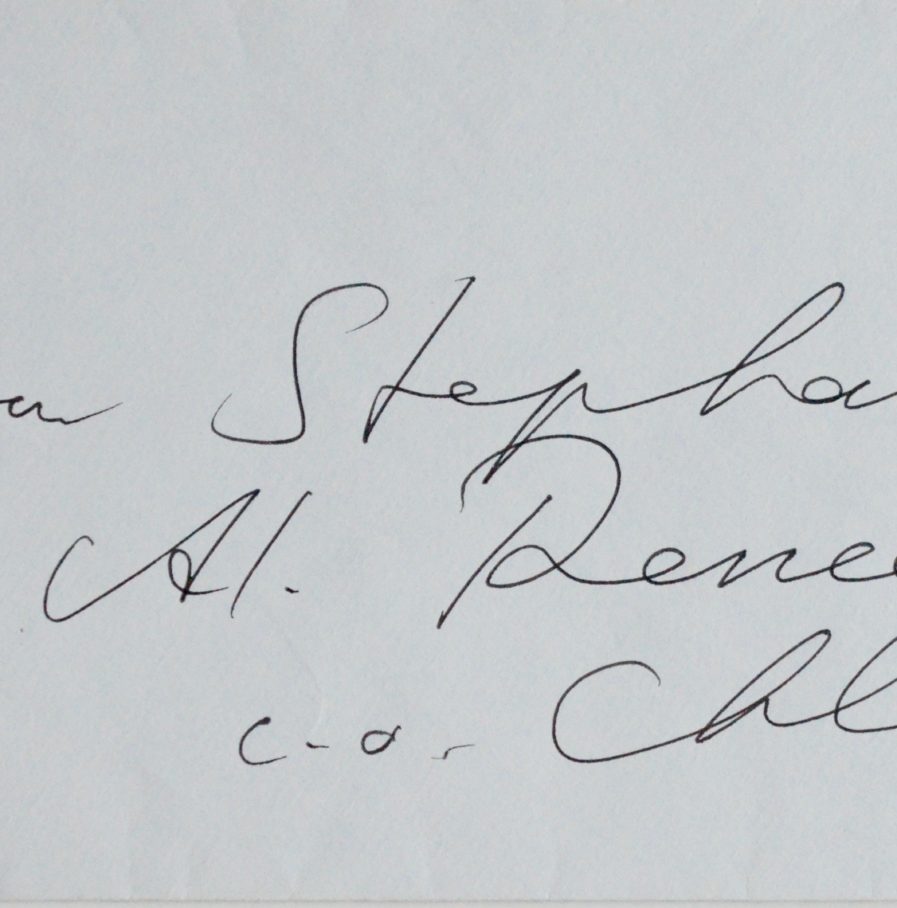 Stepha
Al. Rene
c-o- Chl